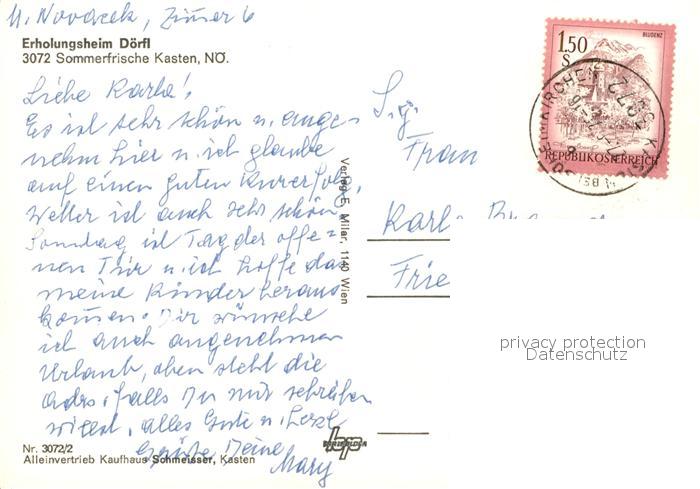 M. Novacek, Zimmer 6
Erholungsheim Dörfl
3072 Sommerfrische Kasten, NÖ.
Liebe Karla!
Es ist sehr schön u. ange-
nehm hier u. ich glaube
auf einen guten Kurerfolg,
Wetter ist auch sehr schön
Sonntag ist Tag der offe=
nen Tür u. ich hoffe das
meine Kinder heraus
kommen. Dir wünsche
ich auch angenehmen
Urlaub, oben steht die
Adrs. falls Du mir schreiben
willst, alles Gute u. herzl
Grüße Deine
Mary
Nr. 3072/2
Alleinvertrieb Kaufhaus Schmeisser, Kasten
Verlag E. Milar, 1140 Wien
S.g.
Frau
Karla
Frie
BLUDENZ
1.50
S
REPUBLIK ÖSTERREICH
3072
privacy protection
Datenschutz